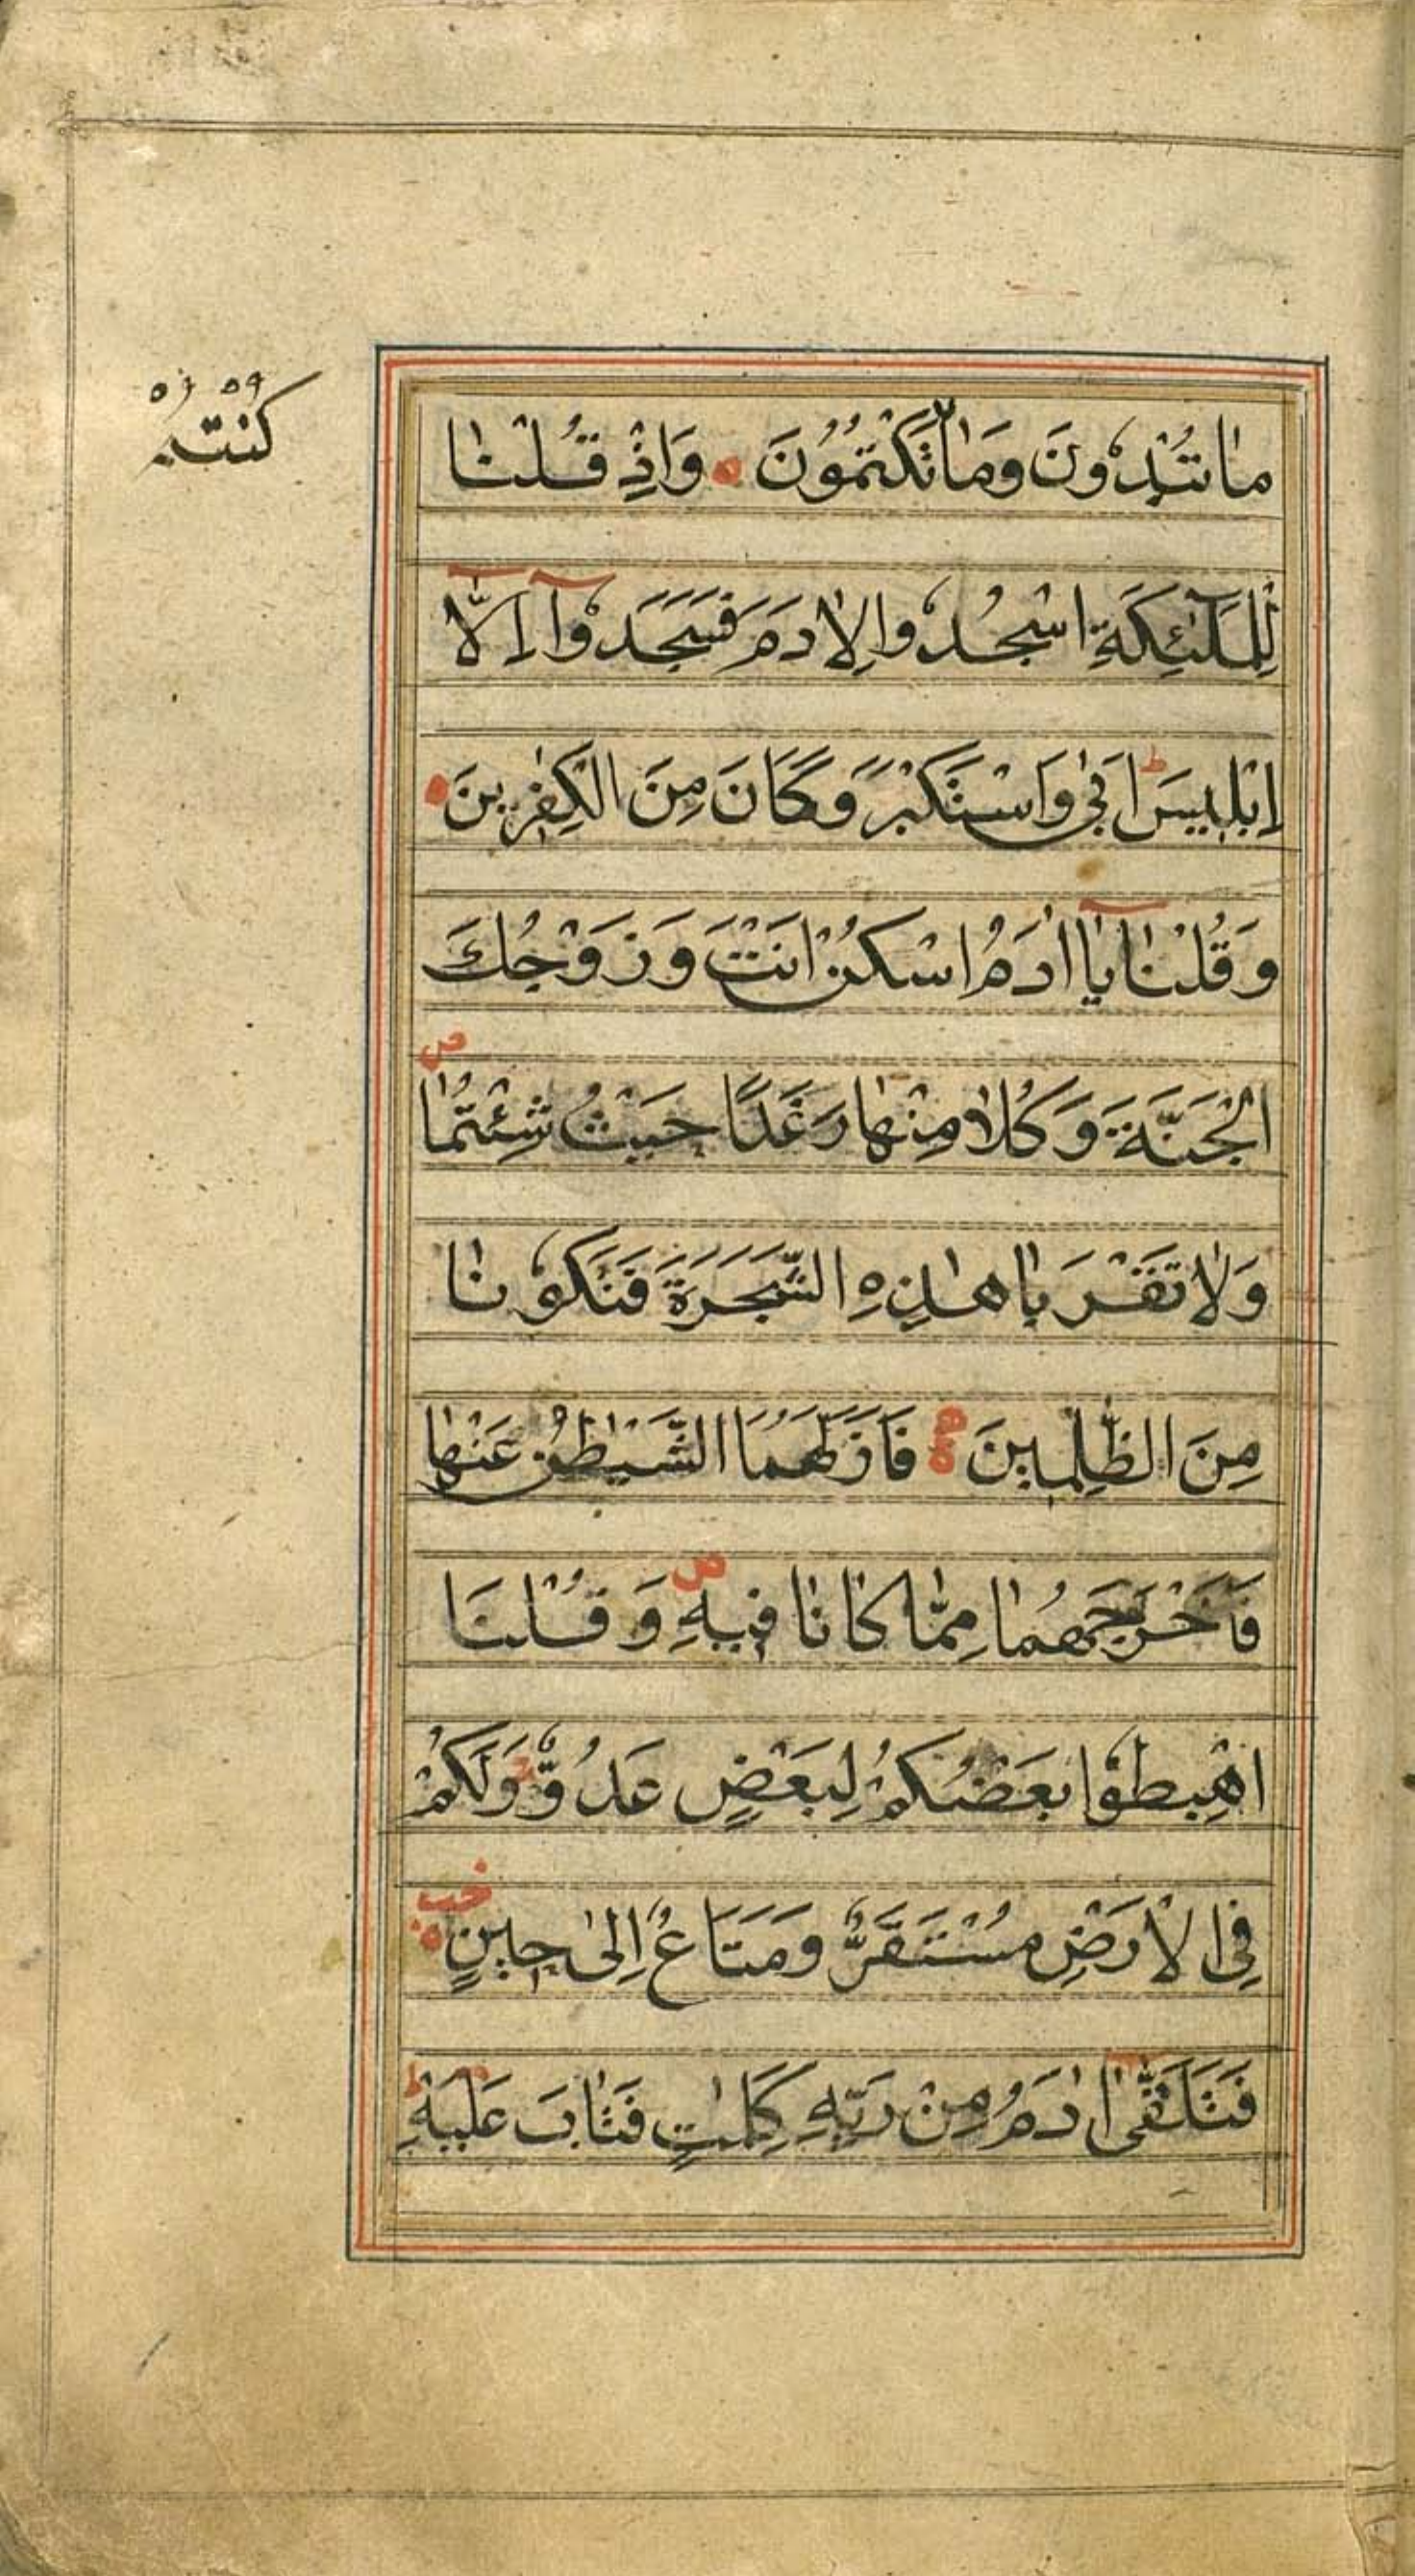 كُنْتُمْ
مَا تُبْدُونَ وَمَا تَكْتُمُونَ وَاِذْ قُلْنَا
لِلْمَلٰٓئِكَةِ اسْجُدُوا لِاٰدَمَ فَسَجَدُوٓا اِلَّآ
اِبْلِيسَ ط اَبٰى وَاسْتَكْبَرَ وَكَانَ مِنَ الْكٰفِرِينَ
وَقُلْنَا يَآ اٰدَمُ اسْكُنْ اَنْتَ وَزَوْجُكَ
الْجَنَّةَ وَكُلَا مِنْهَا رَغَدًا حَيْثُ شِئْتُمَا ص
وَلَا تَقْرَبَا هٰذِهِ الشَّجَرَةَ فَتَكُونَا
مِنَ الظّٰلِمِينَ فَاَزَلَّهُمَا الشَّيْطٰنُ عَنْهَا
فَاَخْرَجَهُمَا مِمَّا كَانَا فِيهِ ص وَقُلْنَا
اهْبِطُوا بَعْضُكُمْ لِبَعْضٍ عَدُوٌّ وَلَكُمْ
فِى الْاَرْضِ مُسْتَقَرٌّ وَمَتَاعٌ اِلٰى حِينٍ
فَتَلَقّٰٓى اٰدَمُ مِنْ رَبِّهِ كَلِمٰتٍ فَتَابَ عَلَيْهِ ط